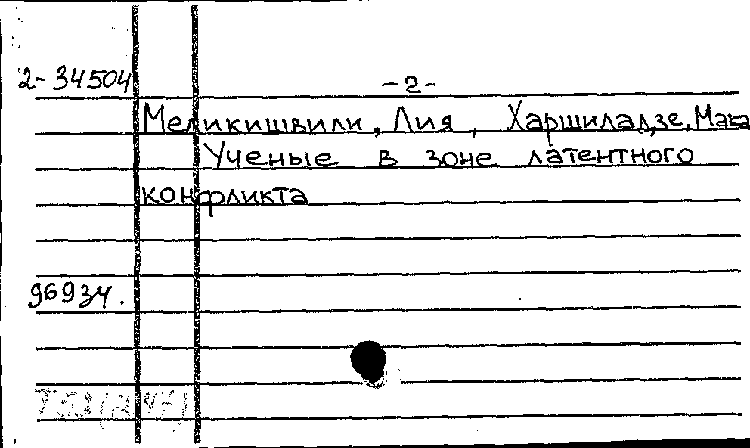 2-34504
-2-
Меликишвили, Лия, Харшиладзе, Мака
Ученые в зоне латентного
конфликта